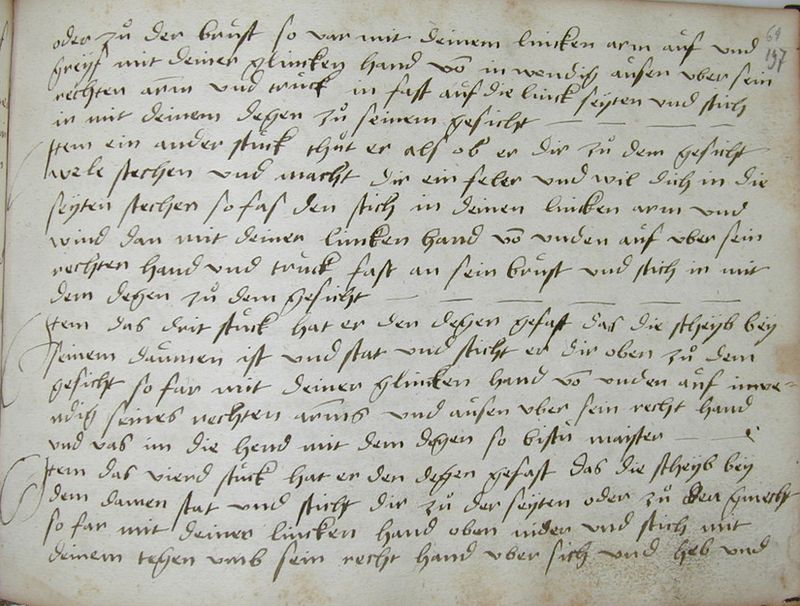 69
197
oder zů der brust so var mit deinem lincken arm auf und
greyf mit deiner glincken hand vō inwendig ausen vber sein
rechten arm und truck in fast auf die linck seyten und stich
in mit deinem degen zů seinem gesicht
Item ein ander stuck thut er als ob er dir zů dem gesicht
wele stechen und macht dir ein feler und wil dich in die
seyten stechen so fas den stich in deinen lincken arm und
wind dan mit deiner lincken hand vō unden auf vber sein
rechten hand und truck fast an sein brust und stich in mit
dem degen zů dem gesicht
Item das drit stuck hat er den degen gefast das die scheyb bey
seinem daumen ist und stat und sticht er dir oben zů dem
gesicht so far mit deiner glincken hand vō unden auf inwe=
ndig seines rechten arms und ausen vber sein recht hand
und vas im die hend mit dem degen so bistu mayster
Item das vierd stuck hat er den degen gefast das die scheyb bey
dem damen stat und sticht dir zů der seyten oder zů den gmecht
so far mit deiner lincken hand oben nider und stich mit
deinem tegen umb sein recht hand vber sich und heb und